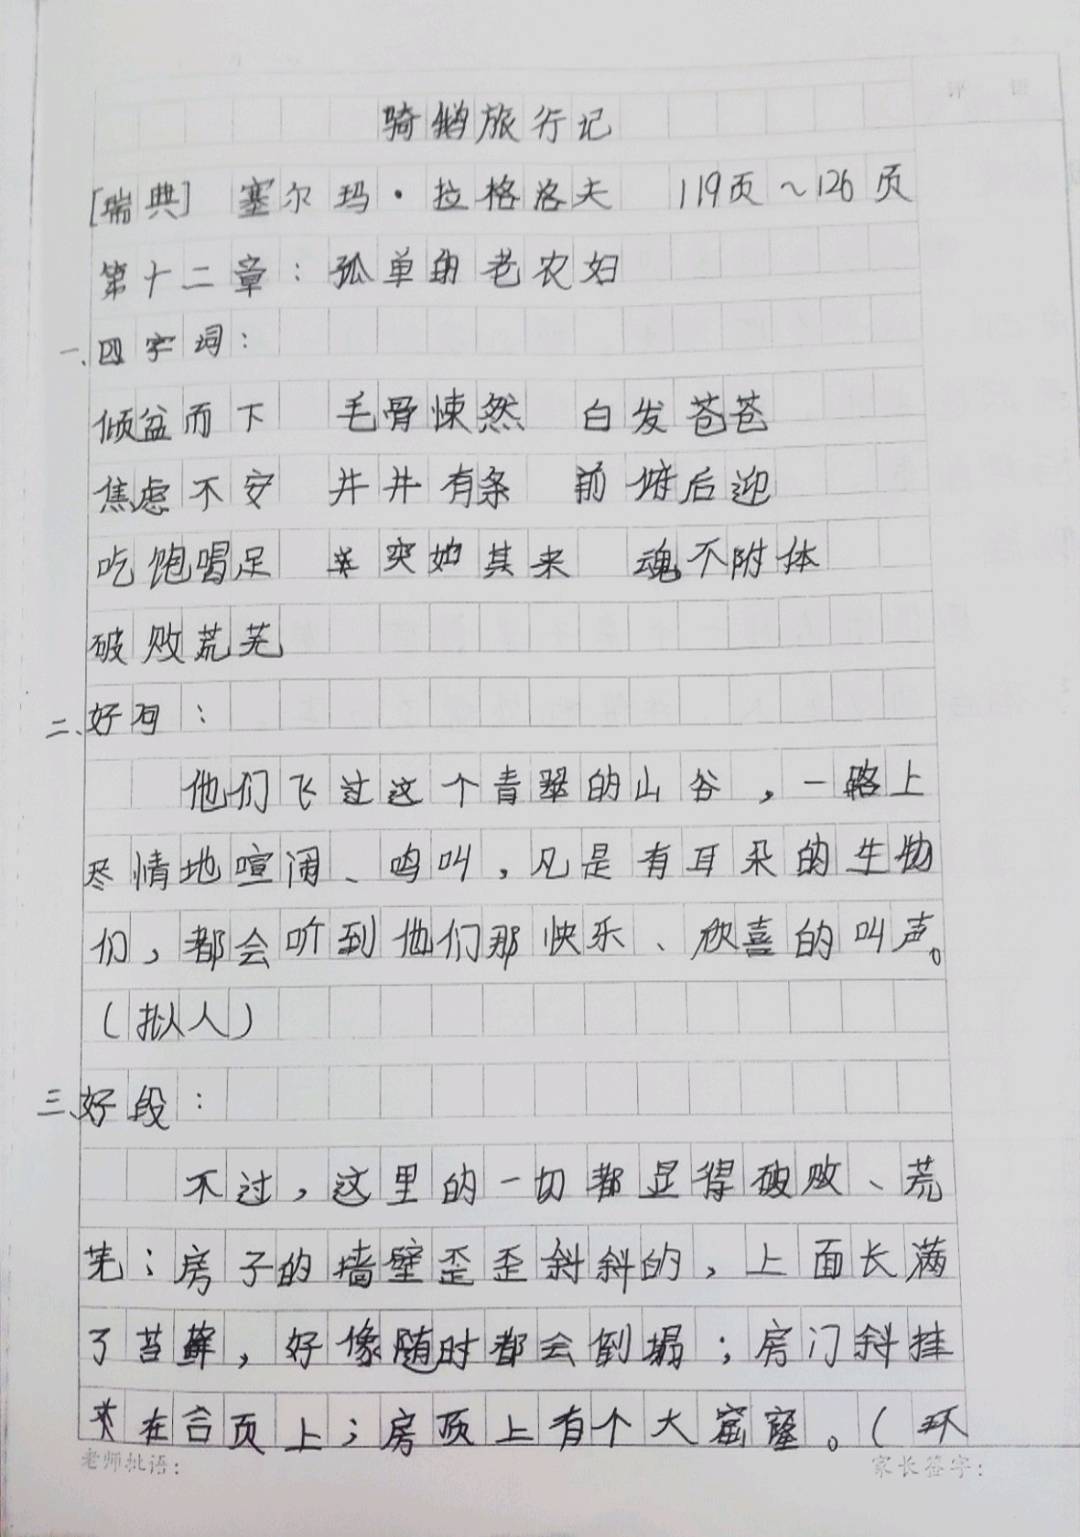 评 语
骑鹅旅行记
[瑞典] 塞尔玛·拉格洛夫 119页~126页
第十二章：孤单的老农妇
一、四字词：
倾盆而下 毛骨悚然 白发苍苍
焦虑不安 井井有条 前摧后迎
吃饱喝足 突如其来 魂不附体
破败荒芜
二、好句：
他们飞过这个青翠的山谷，一路上
尽情地喧闹、鸣叫，凡是有耳朵的生物
们，都会听到他们那快乐、欣喜的叫声。
（拟人）
三、好段：
不过，这里的一切都显得破败、荒
芜；房子的墙壁歪歪斜斜的，上面长满
了苔藓，好像随时都会倒塌；房门斜挂
在合页上；房顶上有个大窟窿。（环
老师批语： 家长签字：